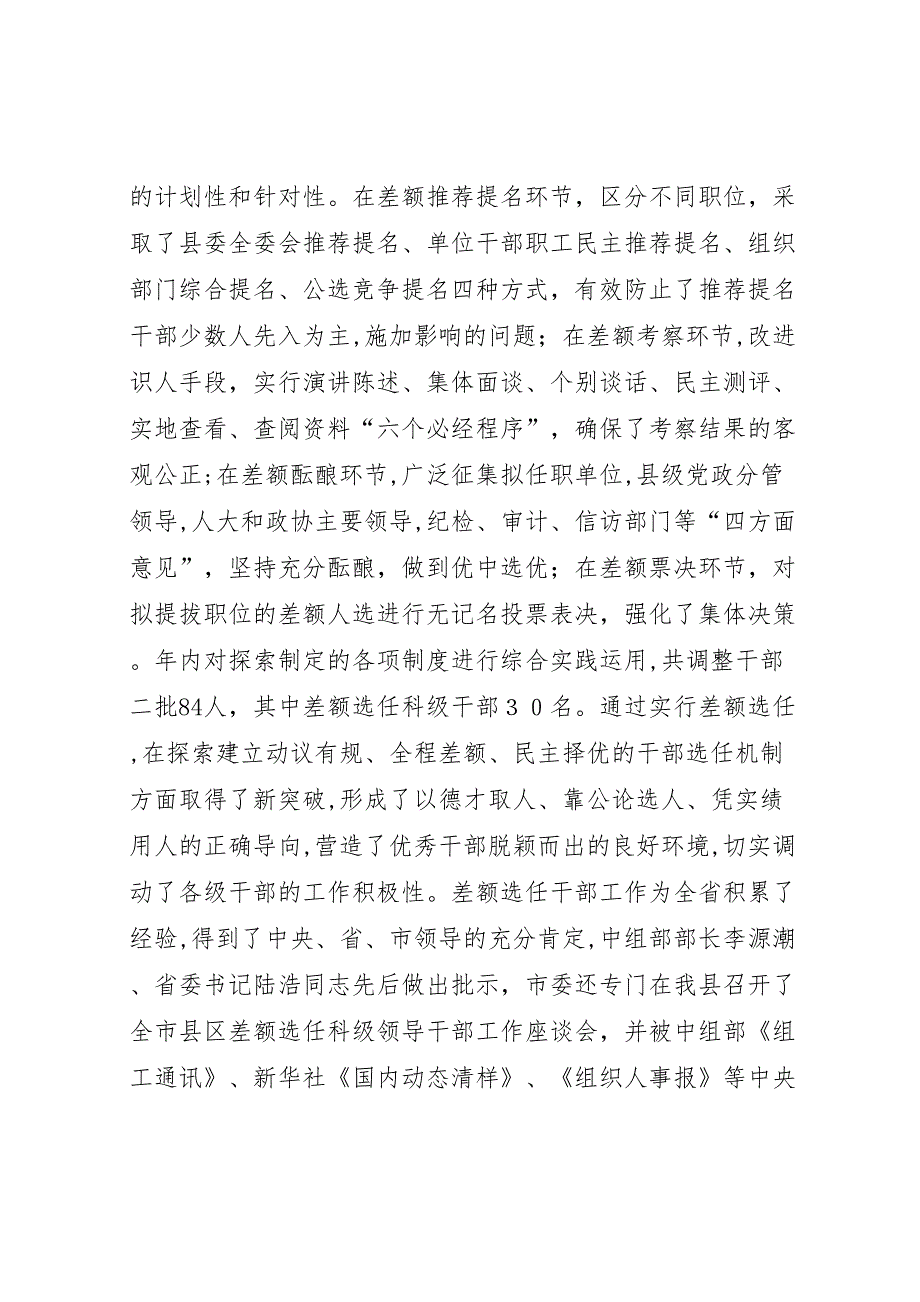 的计划性和针对性。在差额推荐提名环节，区分不同职位，采
取了县委全委会推荐提名、单位干部职工民主推荐提名、组织
部门综合提名、公选竞争提名四种方式，有效防止了推荐提名
干部少数人先入为主,施加影响的问题；在差额考察环节,改进
识人手段，实行演讲陈述、集体面谈、个别谈话、民主测评、
实地查看、查阅资料“六个必经程序”，确保了考察结果的客
观公正;在差额酝酿环节,广泛征集拟任职单位,县级党政分管
领导,人大和政协主要领导,纪检、审计、信访部门等“四方面
意见”，坚持充分酝酿，做到优中选优；在差额票决环节，对
拟提拔职位的差额人选进行无记名投票表决，强化了集体决策
。年内对探索制定的各项制度进行综合实践运用,共调整干部
二批84人，其中差额选任科级干部３０名。通过实行差额选任
,在探索建立动议有规、全程差额、民主择优的干部选任机制
方面取得了新突破,形成了以德才取人、靠公论选人、凭实绩
用人的正确导向,营造了优秀干部脱颖而出的良好环境,切实调
动了各级干部的工作积极性。差额选任干部工作为全省积累了
经验,得到了中央、省、市领导的充分肯定,中组部部长李源潮
、省委书记陆浩同志先后做出批示，市委还专门在我县召开了
全市县区差额选任科级领导干部工作座谈会，并被中组部《组
工通讯》、新华社《国内动态清样》、《组织人事报》等中央